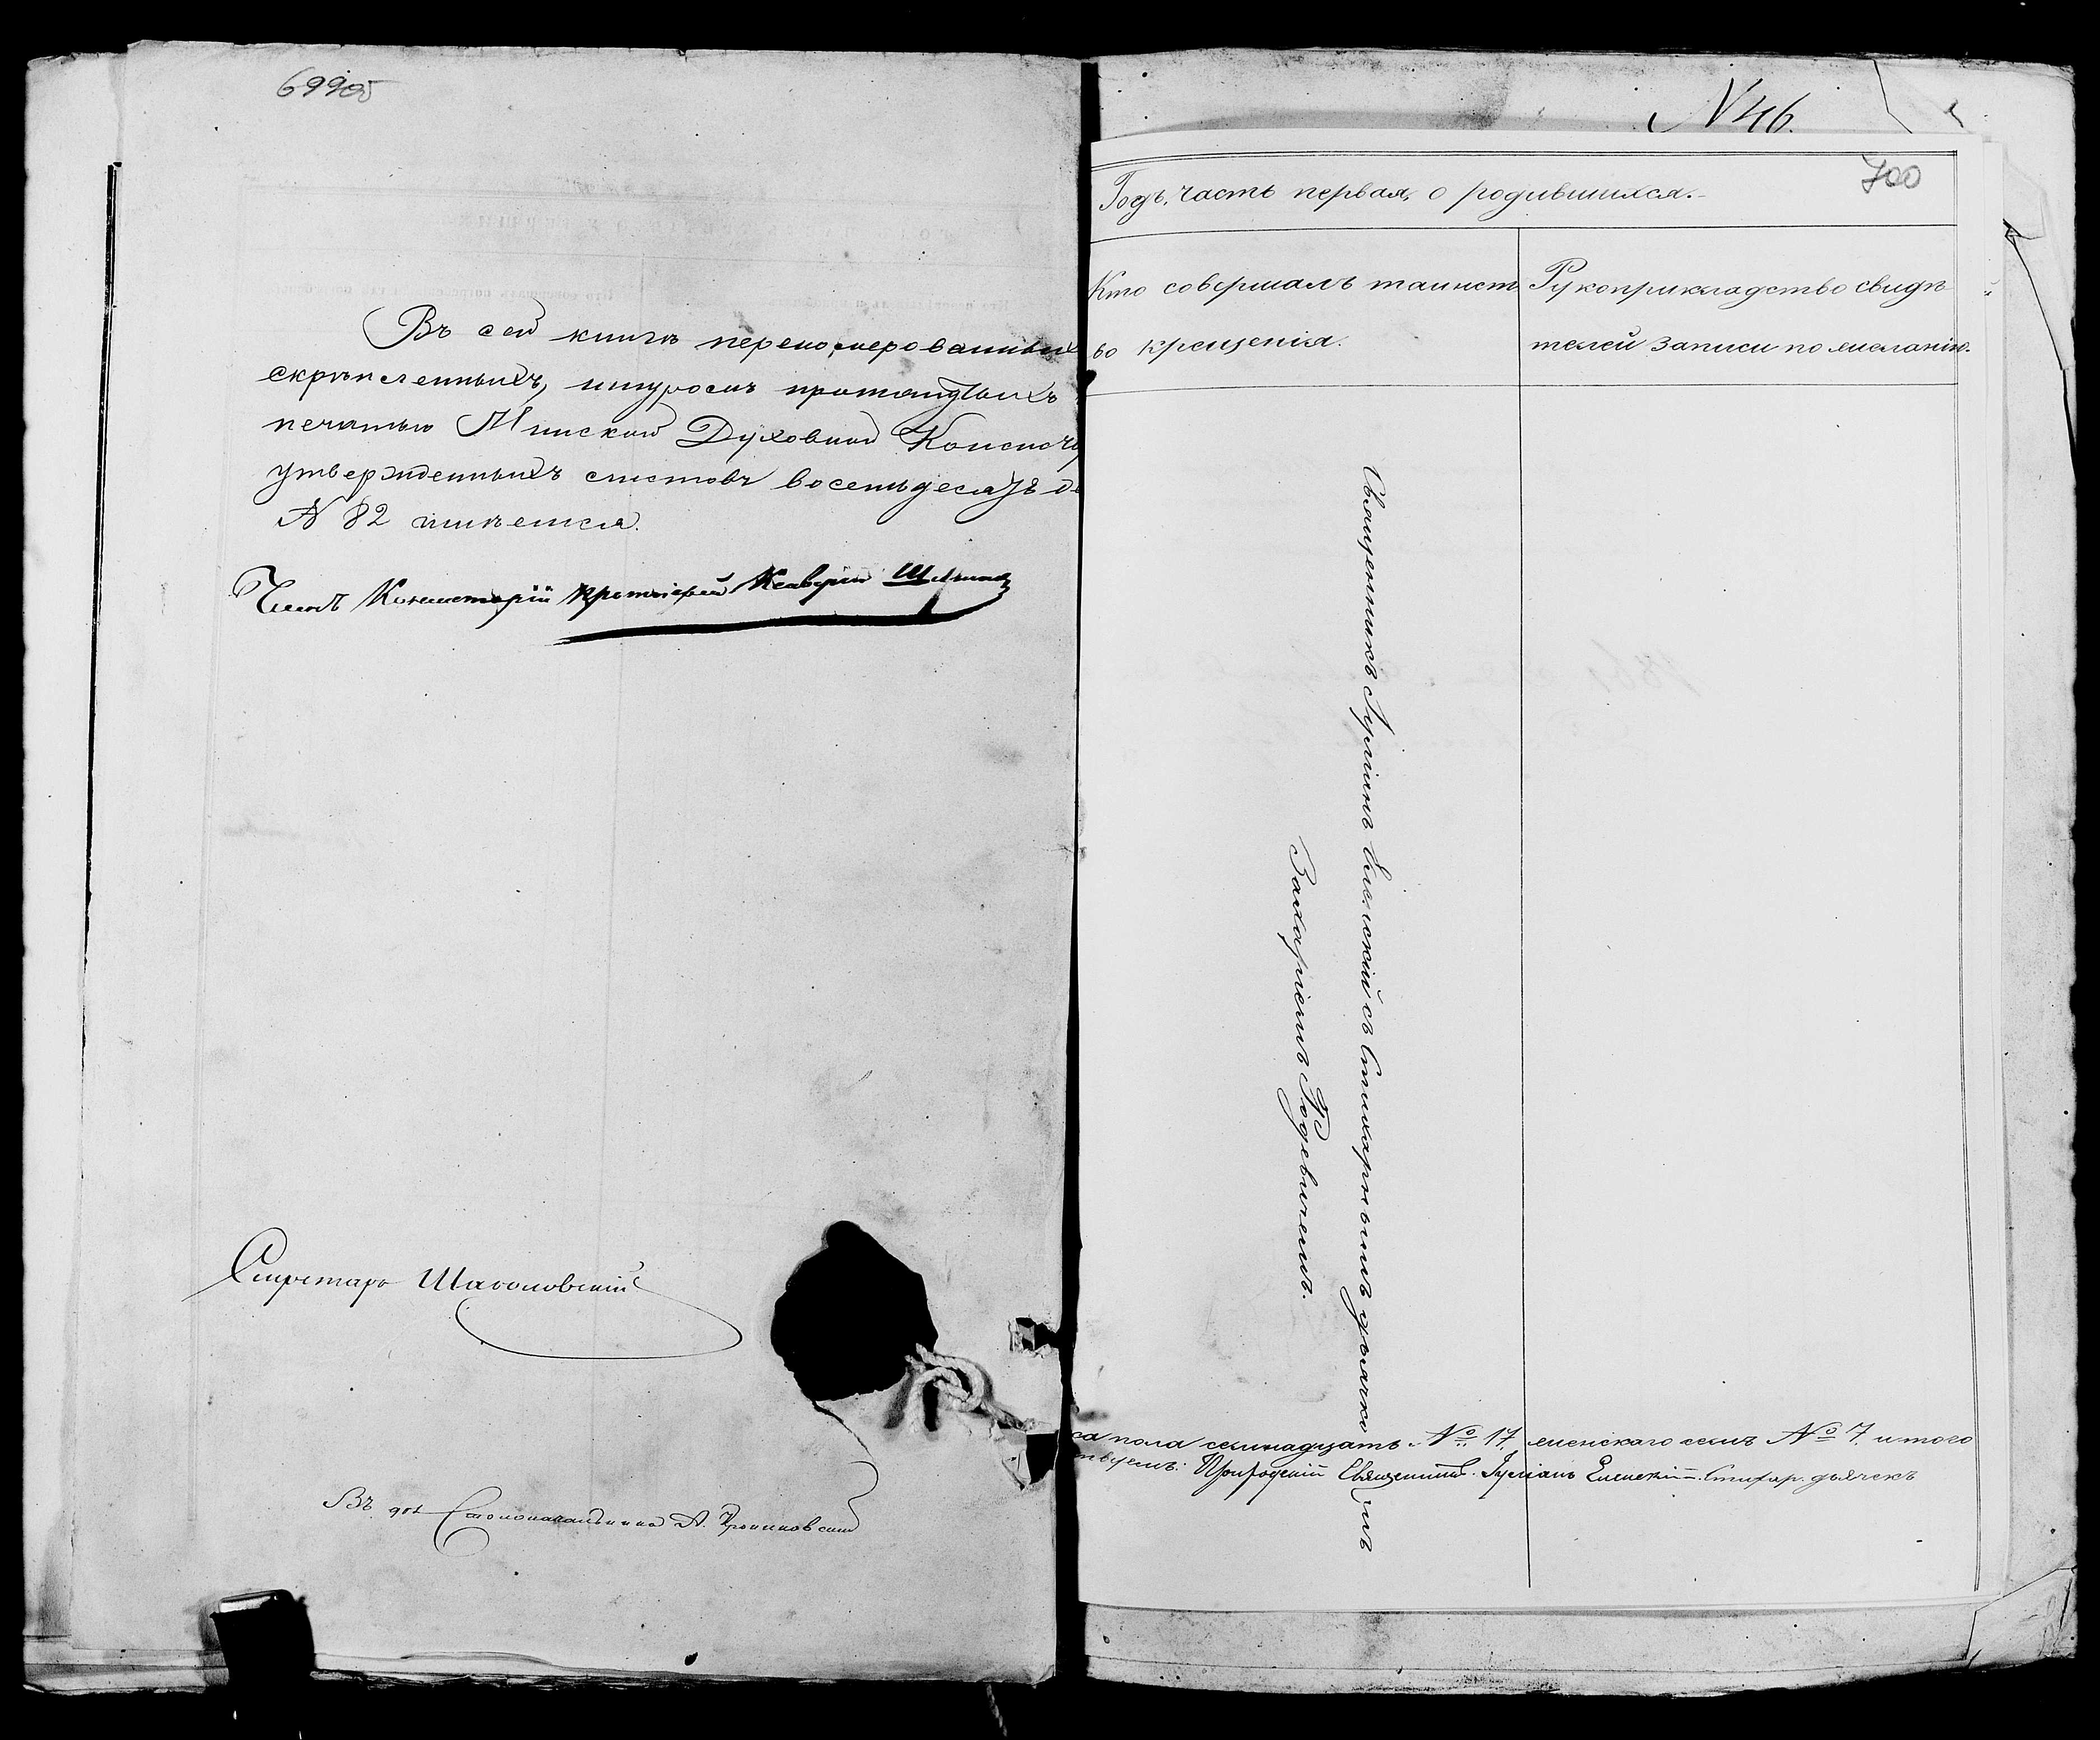 699об
Въ сей книгѣ перенумерованныхъ
скрѣпленныхъ, шнуромъ протянутыхъ
печатью Минской Духовной Консисто
утвержденныхъ листовъ восемьдесятъ д
№ 82 имѣется.
Членъ Консисторіи Протоіерей Ксаверій
Секретарь
Въ дол. Столоначальника А.
N 46.
700
Годъ, часть первая, о родившихся.
Кто совершалъ таинст
во крещенія.
Рукоприкладство свидѣ
телей записи по желанію.
Священникъ Іуліанъ Еленскій съ Стихарнымъ дьячкомъ
Захаріемъ Родевичемъ.
ка пола семнадцать № 17, женскаго семь № 7. итого
твуемъ: Приходскій Священникъ Іуліанъ Еленскій. Стихар. дьячекъ